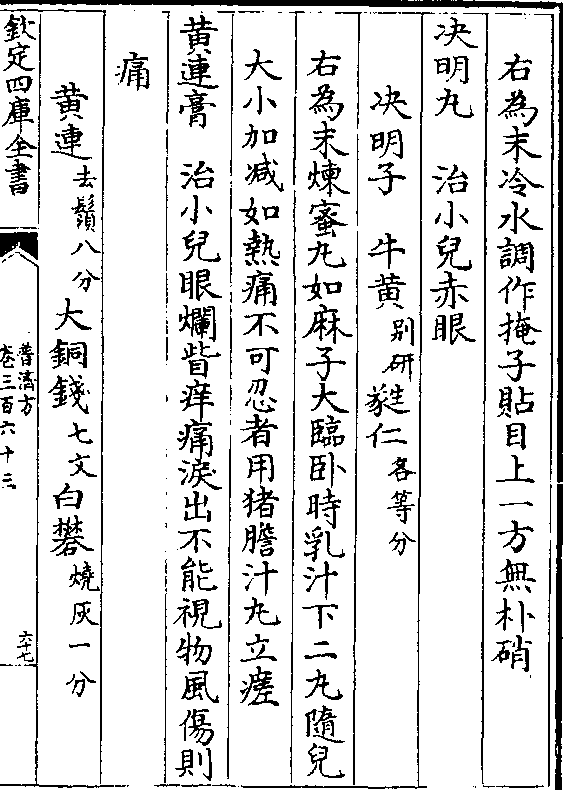 右為末冷水調作掩子貼目上一方無朴硝
决明丸　治小兒赤眼
决明子　牛黄别研蕤仁各等分
右為末煉蜜丸如麻子大臨卧時乳汁下二丸隨兒
大小加减如熱痛不可忍者用猪膽汁丸立瘥
黄連膏　治小兒眼爛眥痒痛淚出不能視物風傷則
痛
黄連去鬚八分大銅錢七文白礬燒灰一分
欽定四庫全書
普濟方
卷三百六十三
六十七